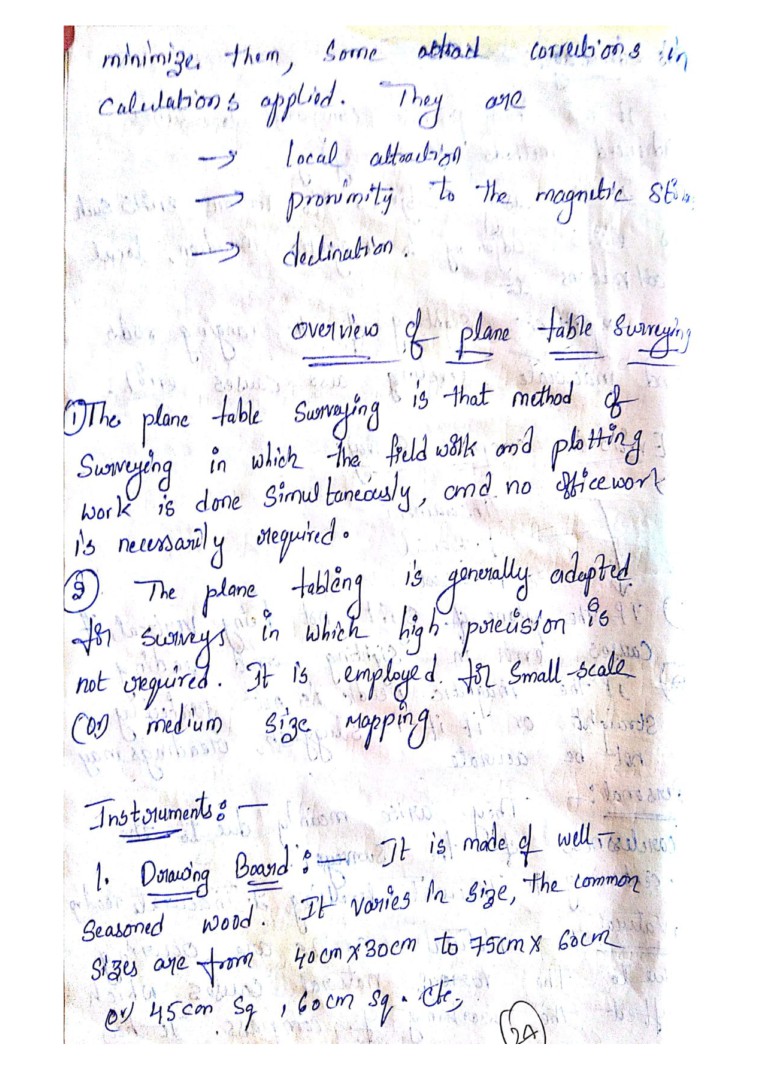 minimize them, Some corrections in
Calculations applied. They are
→ local attraction
→ proximity to the magnetic
→ declination.
overview of plane table Surveying
① The plane table Surveying is that method of
Surveying in which the field work and plotting
work is done Simultaneously, and no office work
is necessarily required.
② The plane tabling is generally adopted
for surveys in which high precision is
not required. It is employed for Small-scale
(or) medium size Mapping
Instruments: —
1. Drawing Board: — It is made of well-
seasoned wood. It varies in size, The common
sizes are from 40cm x 30cm to 75cm x 60cm
or 45cm sq, 60cm sq. etc,
24